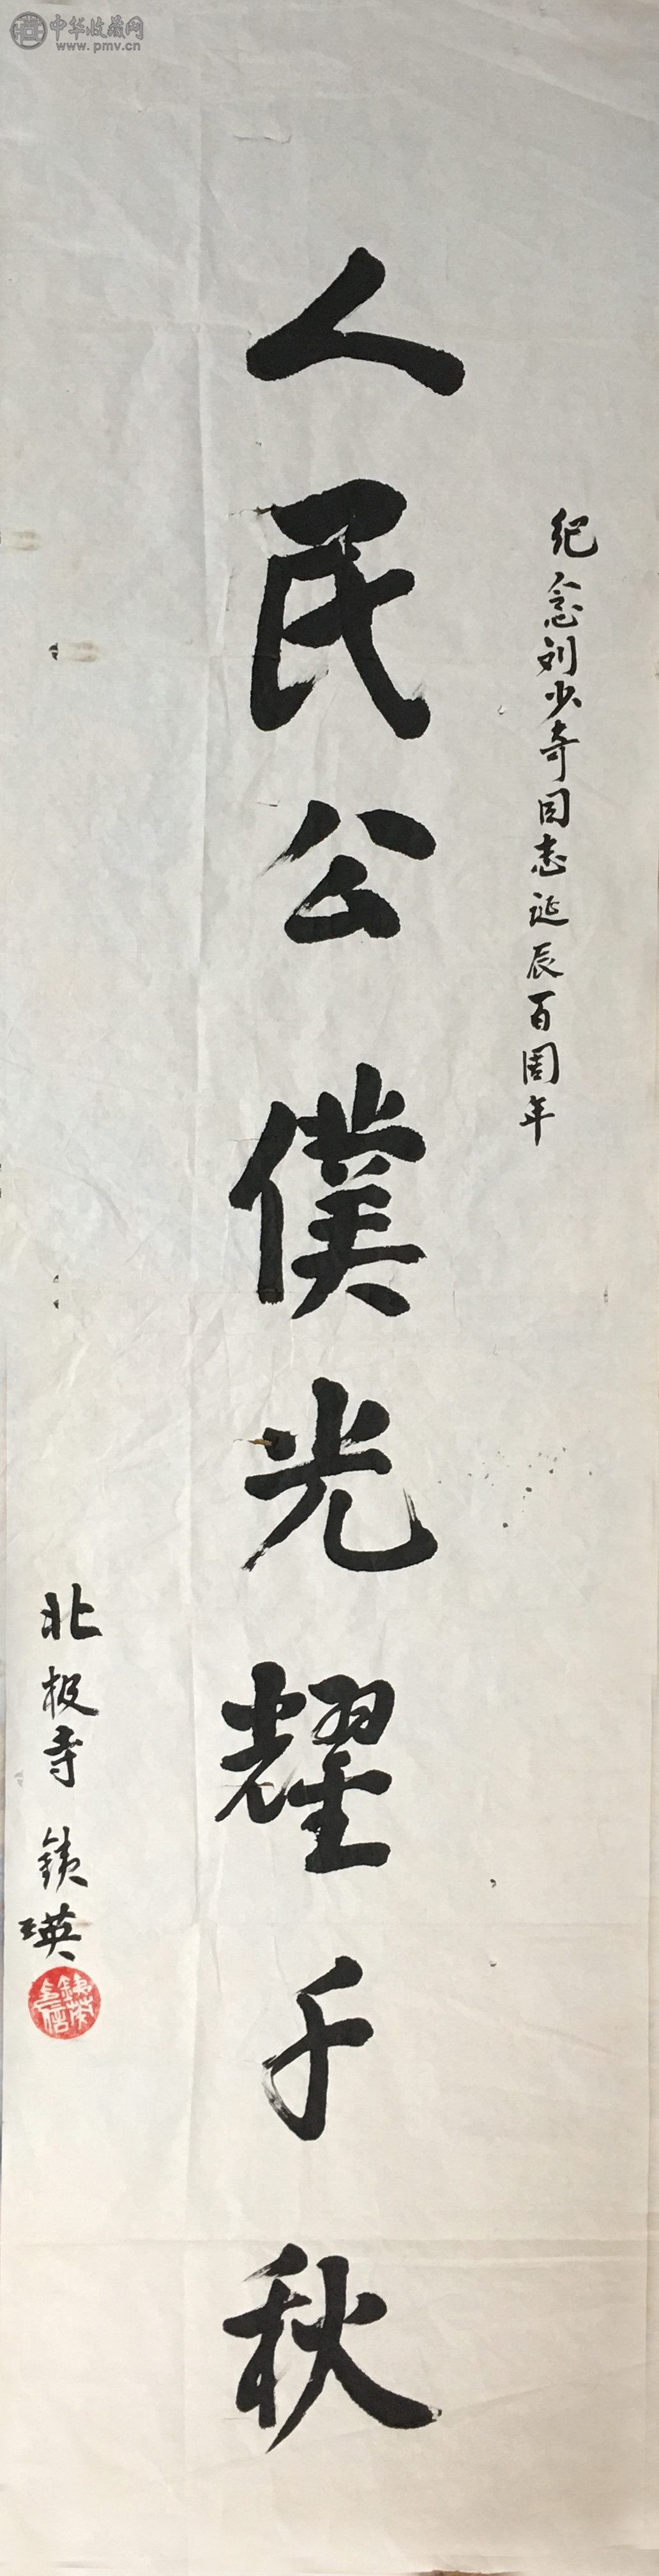 中华收藏网
www.pmv.cn
纪念刘少奇同志诞辰百周年
人民公僕光耀千秋
北极寺 銕瑛